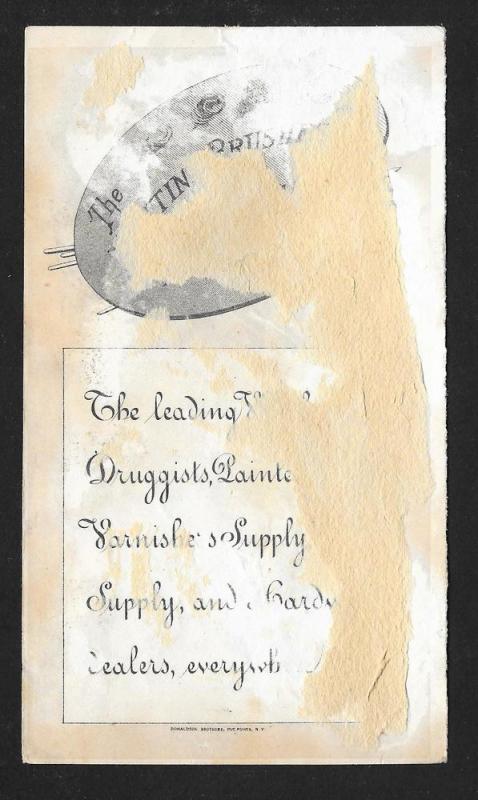 The
TIN
The leading
Druggists, Painte
Varnishe s Supply
Supply, and Hardw
ealers, everywh
DONALDSON BROTHERS, FIVE POINTS, N. Y.